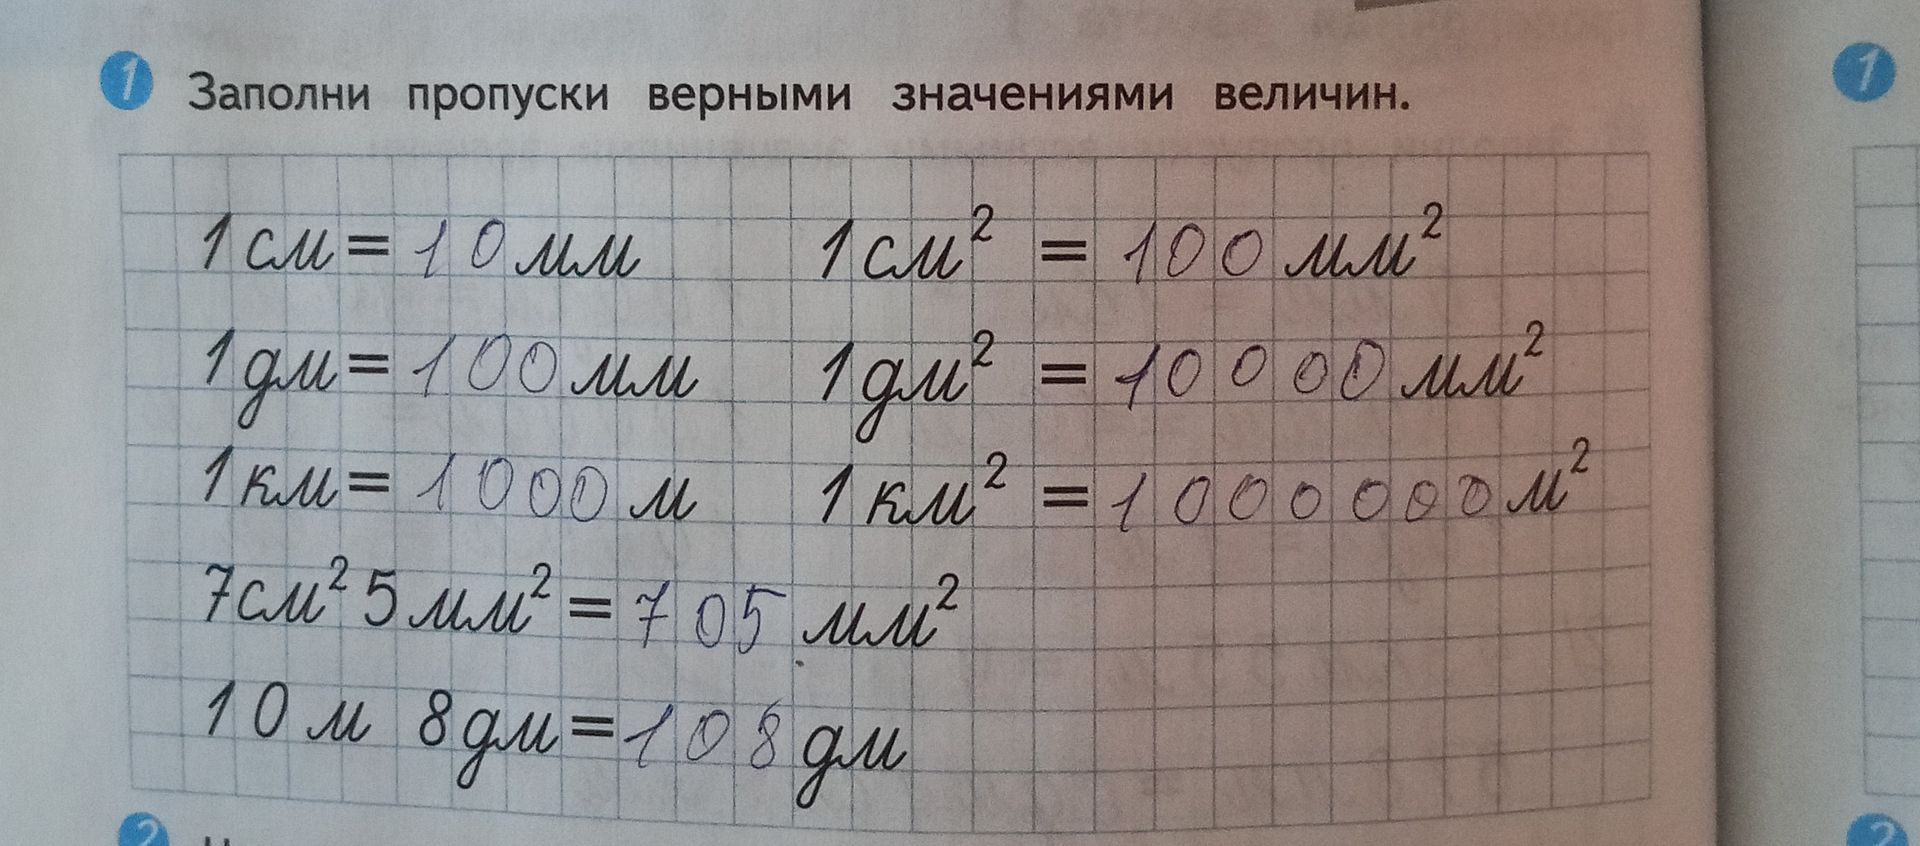 1 Заполни пропуски верными значениями величин. 1
1 см = 10 мм 1 см² = 100 мм²
1 дм = 100 мм 1 дм² = 10000 мм²
1 км = 1000 м 1 км² = 1000000 м²
7 см² 5 мм² = 705 мм²
10 м 8 дм = 108 дм
2 2